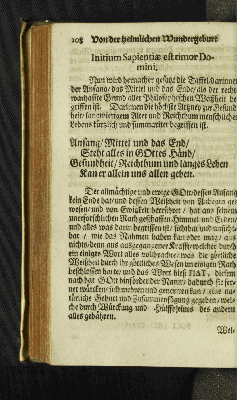 208 Von der heimlichen Wundergeburt
Initium Sapientiæ est timor Do-
mini,
Nun wird hernacher gesetzt die Taffel darinnen
der Anfang/ das Mittel und das Ende/ als der recht
warhaffte Grund aller Philosophischen Weißheit be-
griffen ist. Darinnen die höchste Artzney zur Gesund-
heit/ langwierigem Alter und Reichthum menschlichen
Lebens kürtzlich und summariter begriffen ist.
Anfang/ Mittel und das End/
Steht alles in GOttes Händ/
Gesundheit/ Reichthum und langes Leben
Kan er allein uns allen geben.
Der allmächtige und ewige GOtt dessen Anfang
kein Ende hat/ und dessen Weißheit von Anbeginn ge-
wesen/ und von Ewigkeit herrühret/ hat aus seinem
unerforschlichen Rath geschaffen Himmel und Erden/
und alles was darin begriffen ist/ sichtbar und unsicht-
bar/ wie das Nahmen haben kan oder mag/ aus
nichts/ denn aus ausgegangener Krafft welcher durch
ein einiges Wort alles vollbrachte/ was die göttliche
Weißheit durch ihr göttliches Wesen im ewigen Rath
beschlossen hatte/ und das Wort hieß FIAT, diesem
nach hat GOtt hinförder der Natur/ dadurch sie fer-
ner würcken/ sich mehren und generiren kan/ eine na-
türliche Geburt und Zusammenfügung gegeben/ wel-
che durch Würckung und Hülffe/ eines des andern
alles gebähren.
Wel-